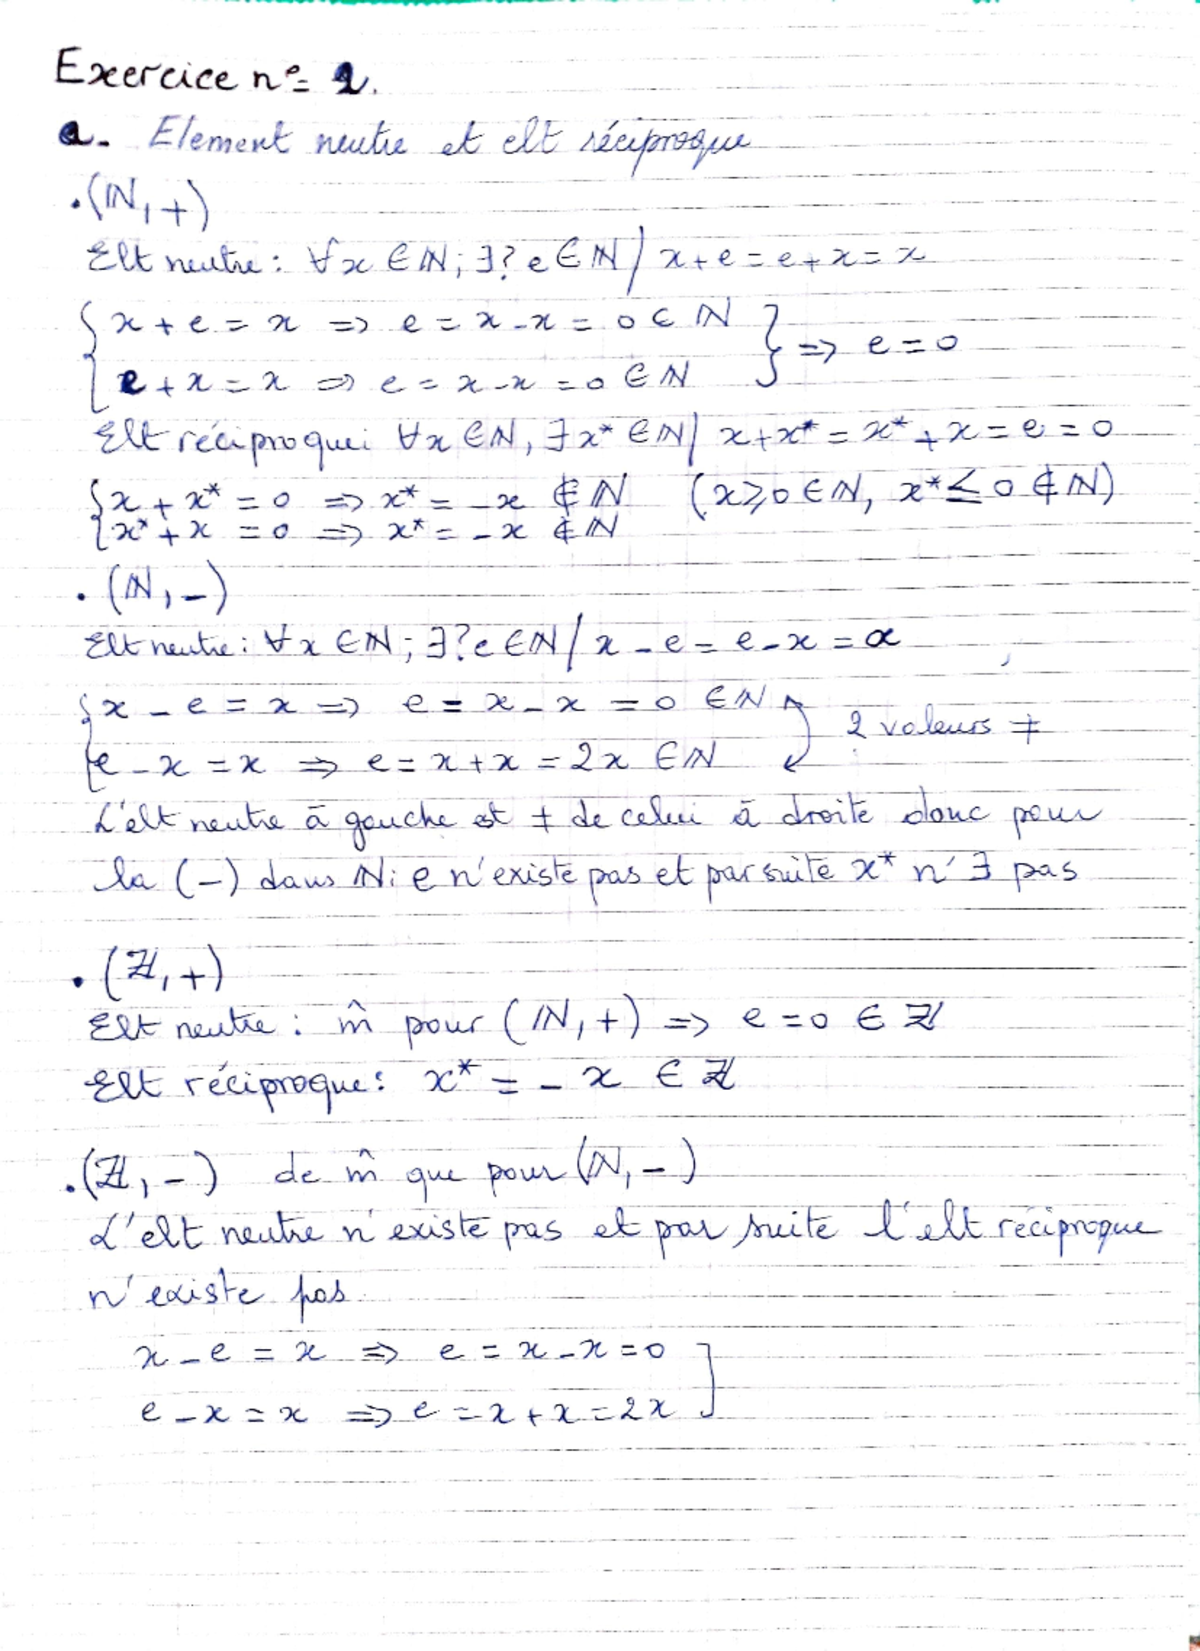 Exercice n°= 2.
a. Element neutre et elt réciproque
. (ℕ, +)
Elt neutre : ∀x ∈ ℕ ; ∃? e ∈ ℕ / x + e = e + x = x
{ x + e = x => e = x - x = 0 ∈ ℕ
{ e + x = x => e = x - x = 0 ∈ ℕ } => e = 0
Elt réciproque : ∀x ∈ ℕ, ∃ x* ∈ ℕ / x + x* = x* + x = e = 0
{ x + x* = 0 => x* = - x ∉ ℕ (x ⩾ 0 ∈ ℕ, x* ≤ 0 ∉ ℕ)
{ x* + x = 0 => x* = - x ∉ ℕ
. (ℕ, -)
Elt neutre : ∀x ∈ ℕ ; ∃? e ∈ ℕ / x - e = e - x = x
{ x - e = x => e = x - x = 0 ∈ ℕ
{ e - x = x => e = x + x = 2x ∈ ℕ 2 valeurs ≠
L'elt neutre à gauche est ≠ de celui à droite donc pour
la (-) dans ℕ : e n'existe pas et par suite x* n'∃ pas
. (ℤ, +)
Elt neutre : m̂ pour (ℕ, +) => e = 0 ∈ ℤ
Elt réciproque : x* = - x ∈ ℤ
. (ℤ, -) de m̂ que pour (ℕ, -)
L'elt neutre n'existe pas et par suite l'elt réciproque
n'existe pas
x - e = x => e = x - x = 0
e - x = x => e = x + x = 2x ]